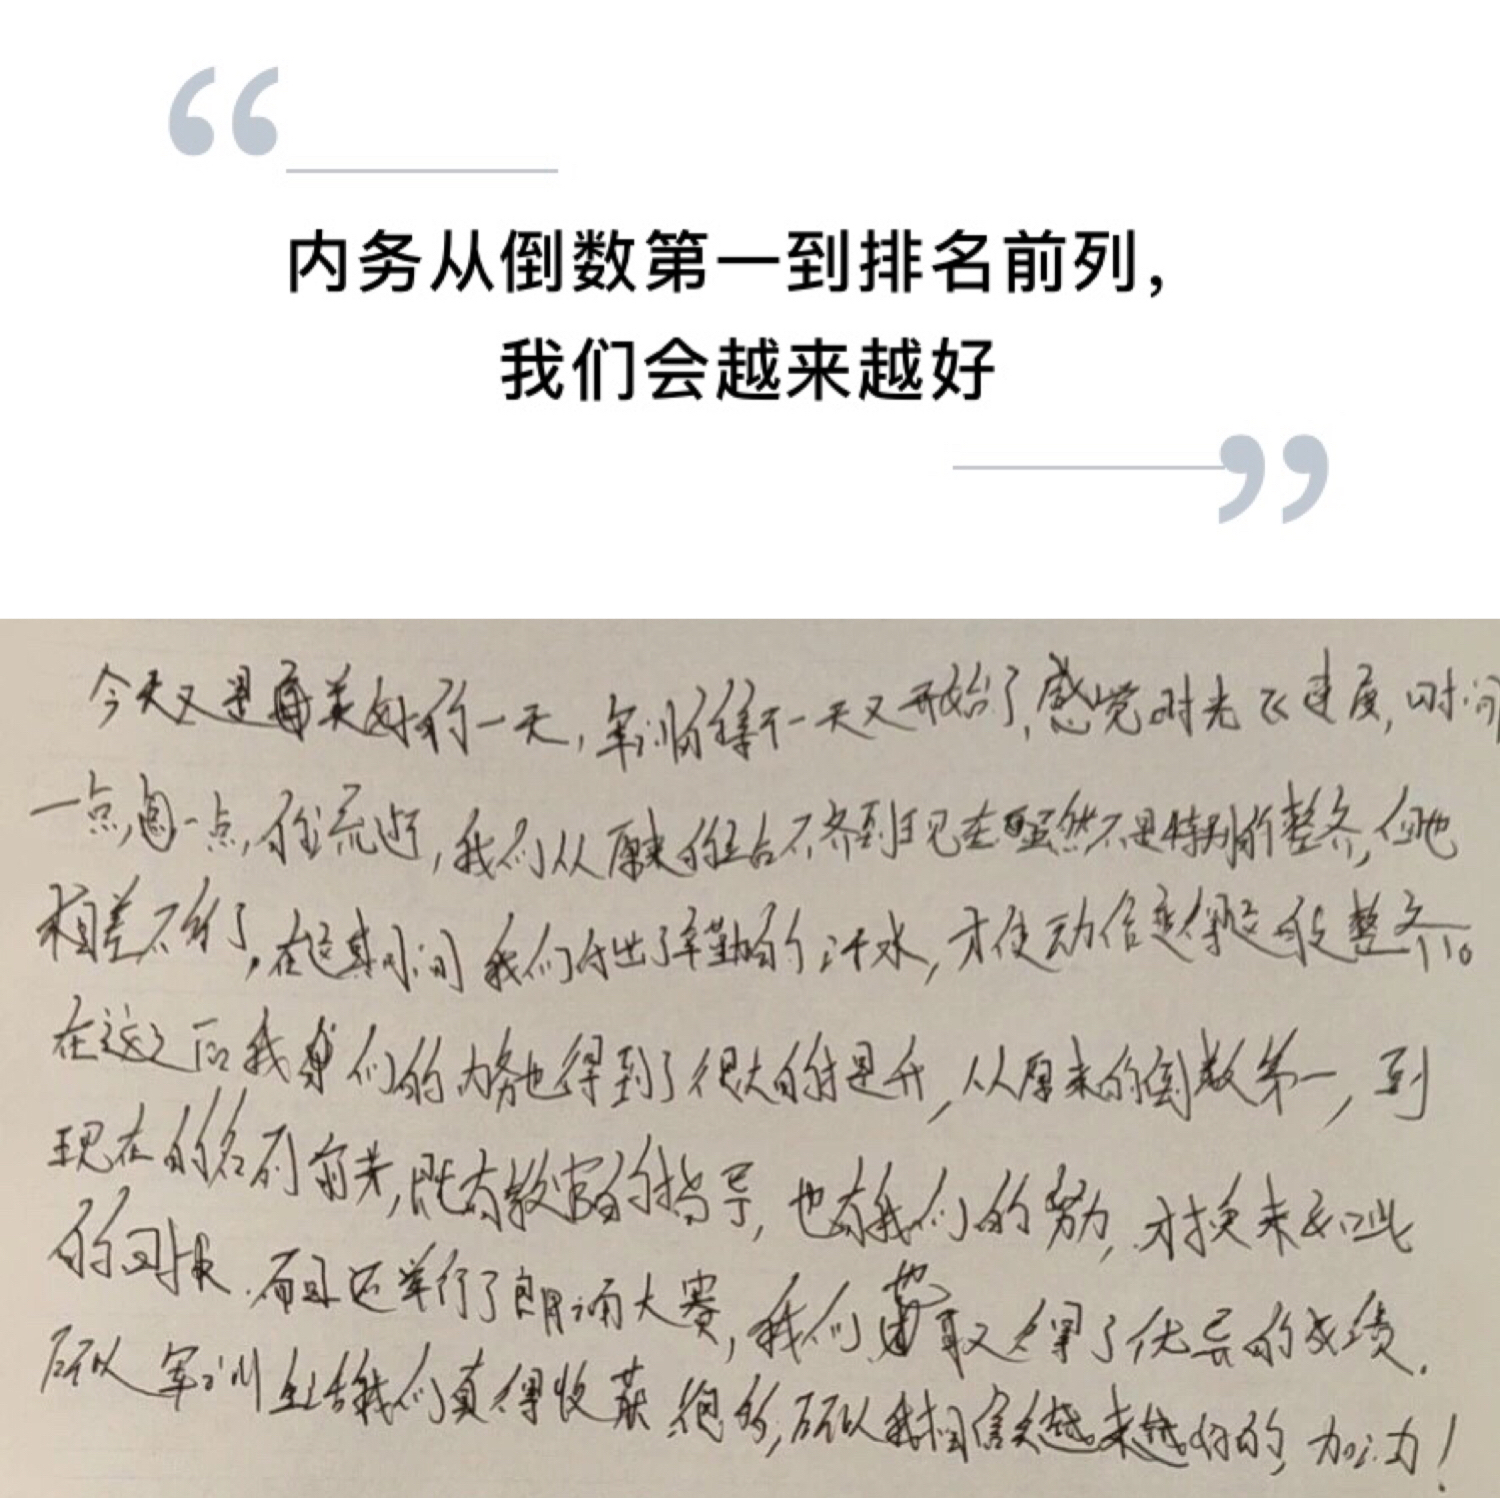 “
内务从倒数第一到排名前列，
我们会越来越好
”
今天又是美好的一天，军训的一天又开始了，感觉时光飞速度，时间
一点，一点，的流逝，我们从原来的不齐到现在虽然不是特别的整齐，但也
相差不多了，在这期间我们付出了辛勤的汗水，才使动作变得这般整齐。
在这之后我们的内务也得到了很大的提升，从原来的倒数第一，到
现在的名列前茅，既有教官的指导，也有我们的努力，才换来如此
的回报．而且还举行了朗诵大赛，我们也取得了优异的成绩．
所以军训生活我们真得收获很多，所以我相信会越来越好的，加油！